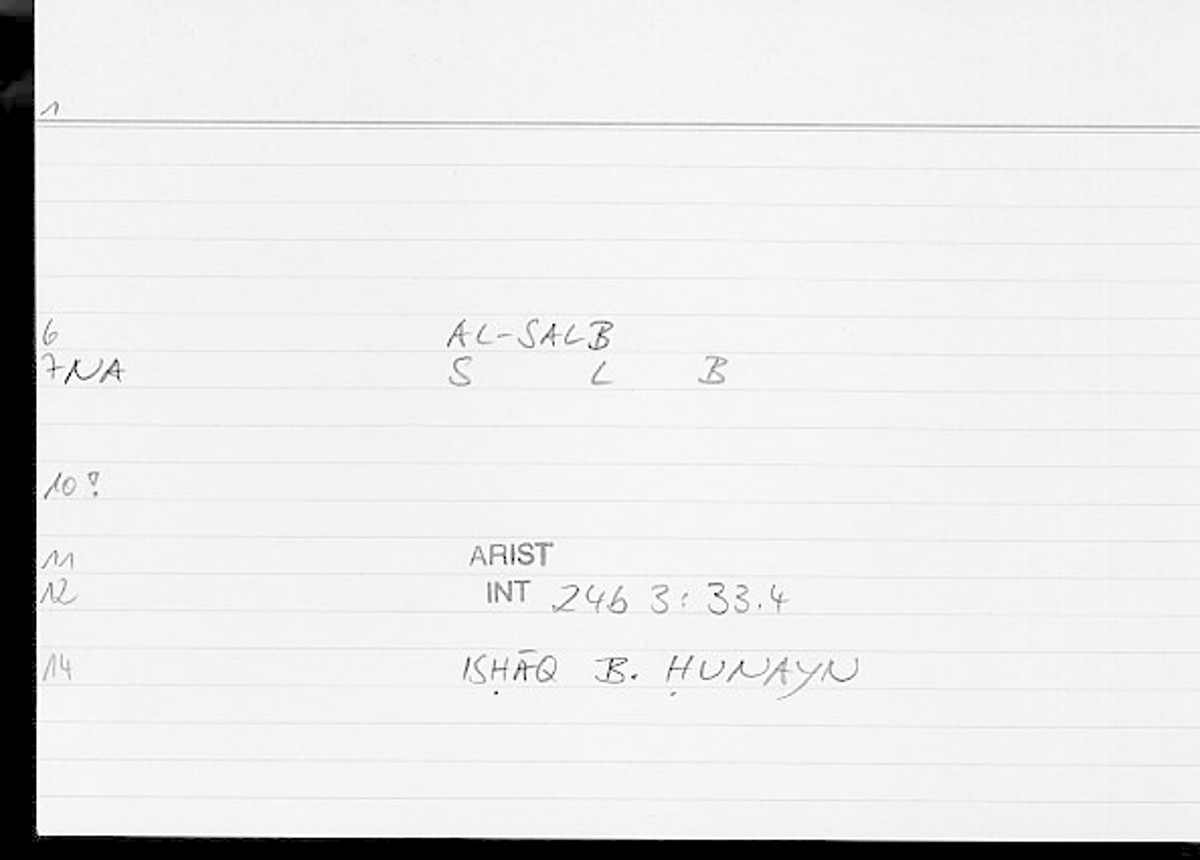 1
6 AL-SALB
7NA S L B
10?
11 ARIST
12 INT 246 3: 33.4
14 ISḤĀQ B. ḤUNAYN